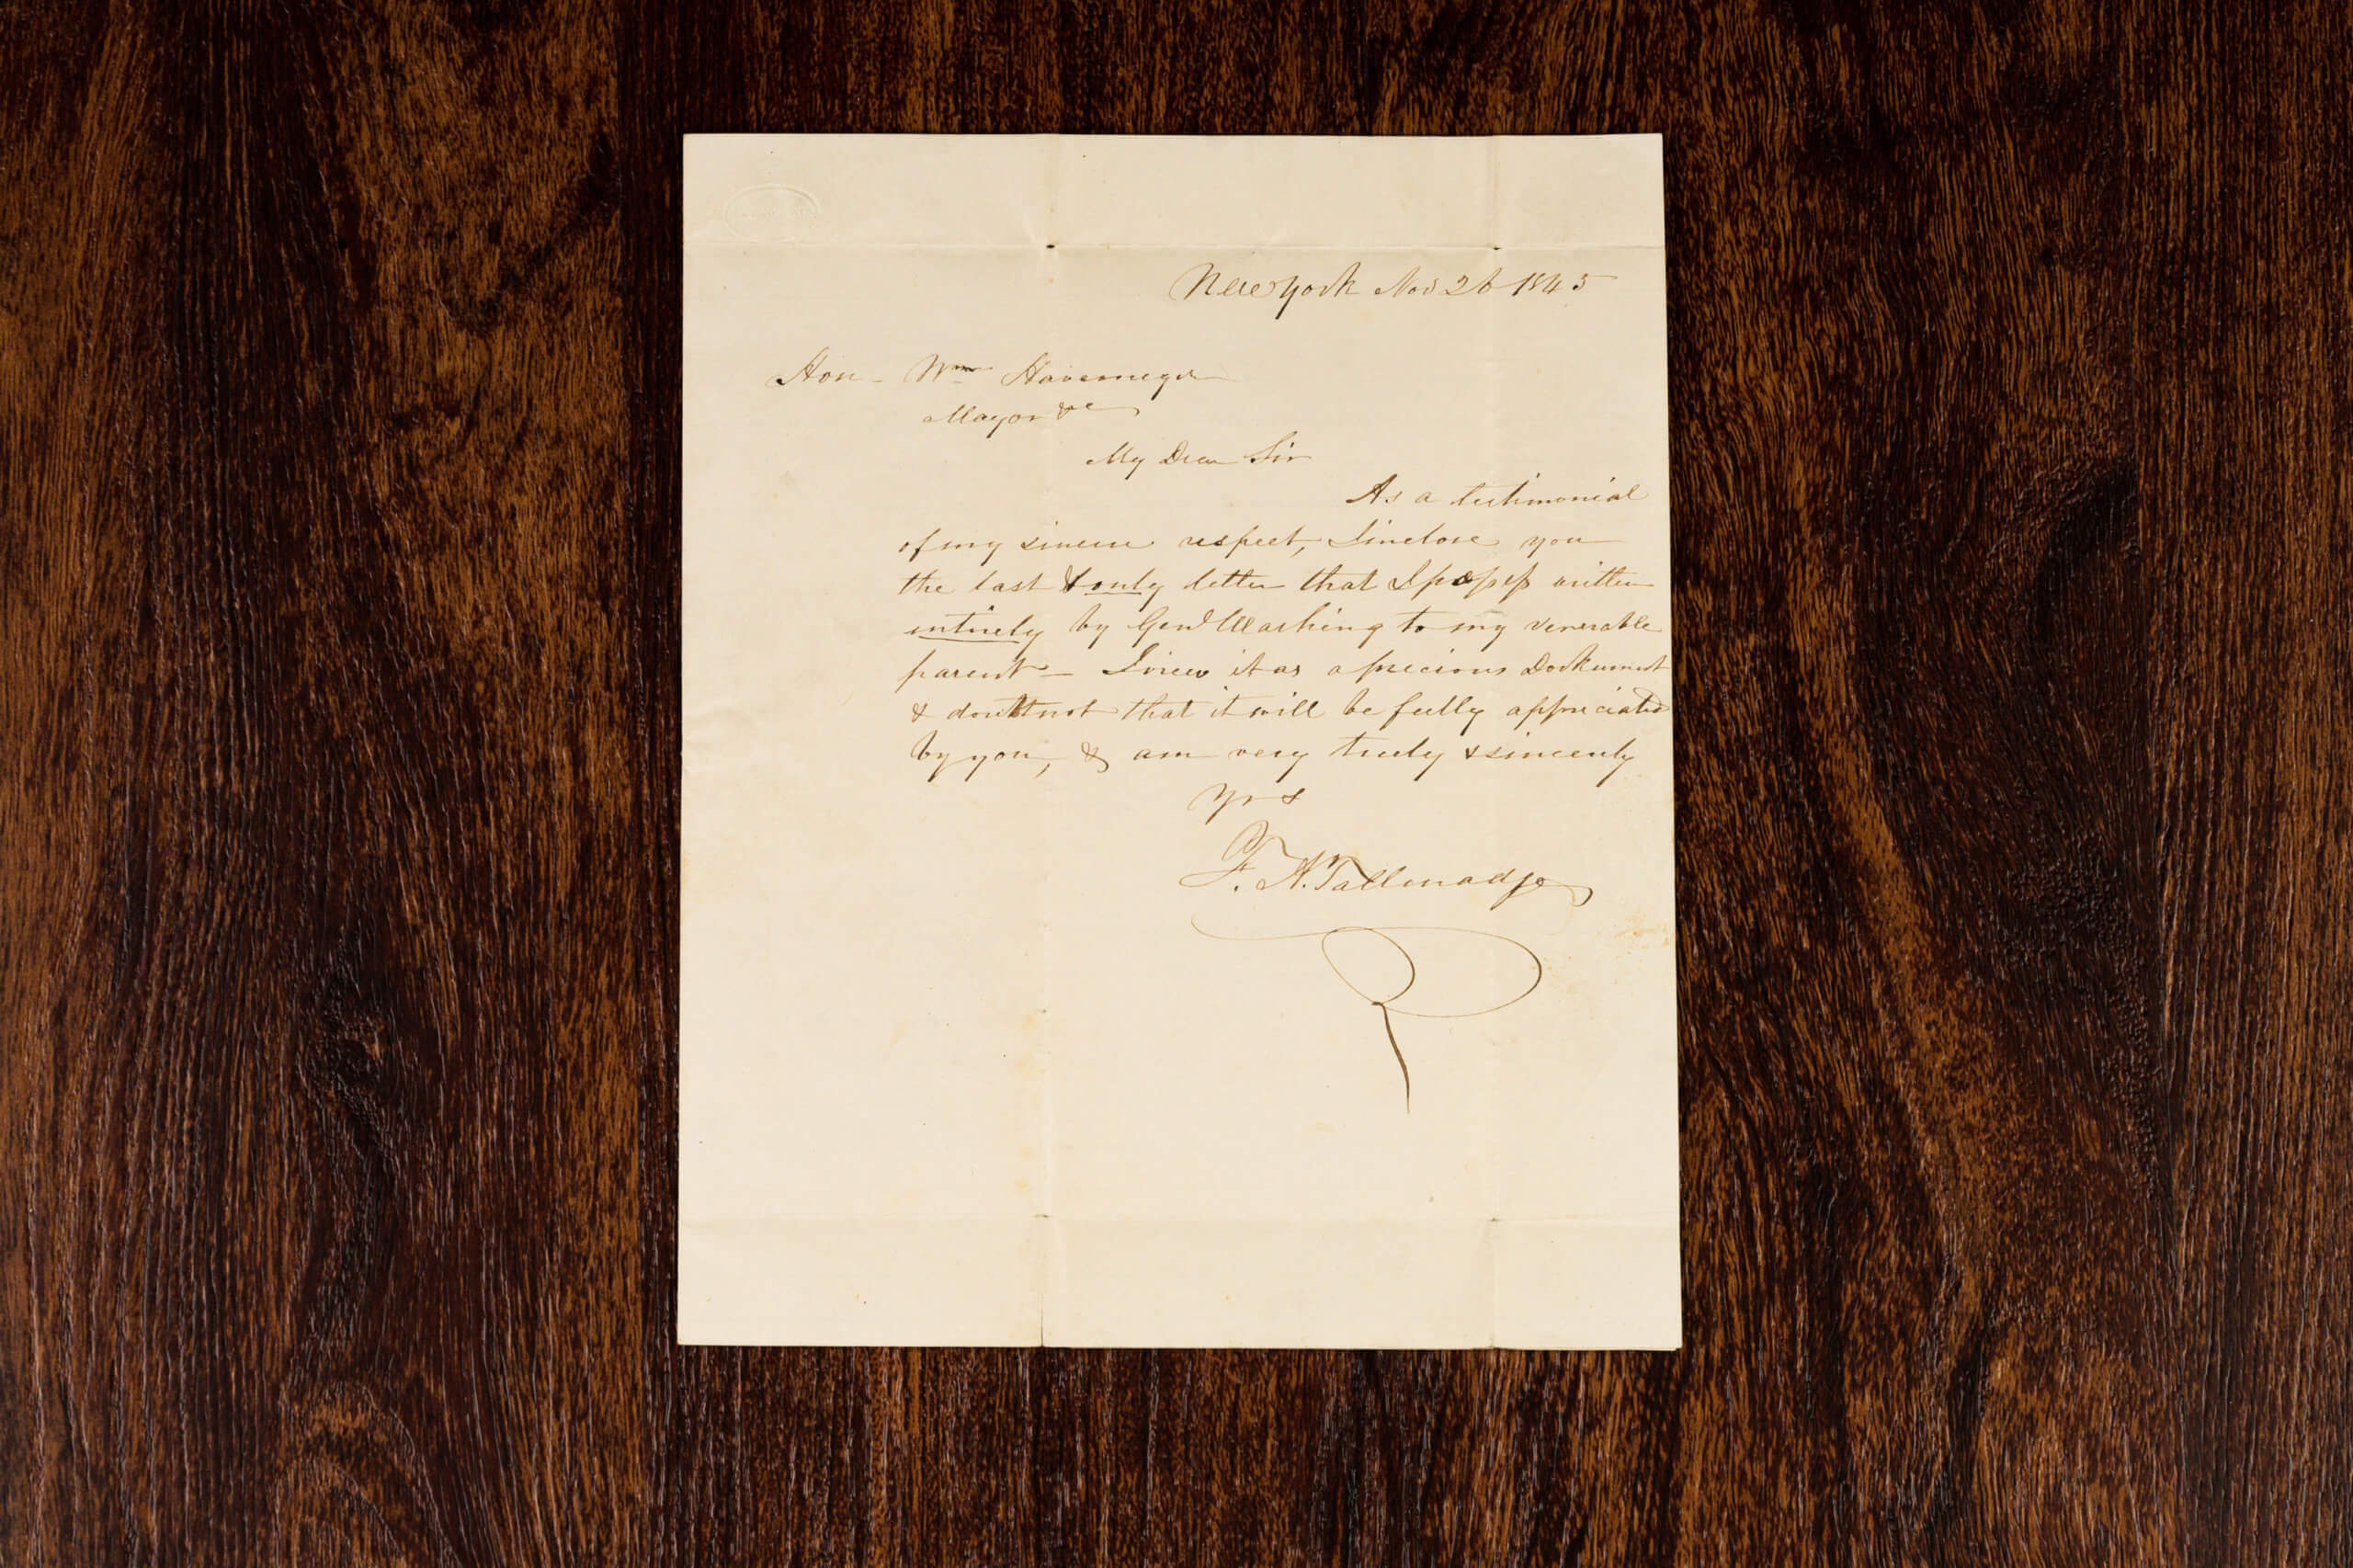 New York Nov 26 1845
Hon - Wm Havemeyer
Mayor &c
My Dear Sir
As a testimonial
of my sincere respect, I inclose you
the last & only letter that I possess written
entirely by Genl Washing to my venerable
parent - I view it as a precious Dockument
& doubt not that it will be fully appreciated
by you, & am very truly & sincerely
Yrs
F. A. Tallmadge